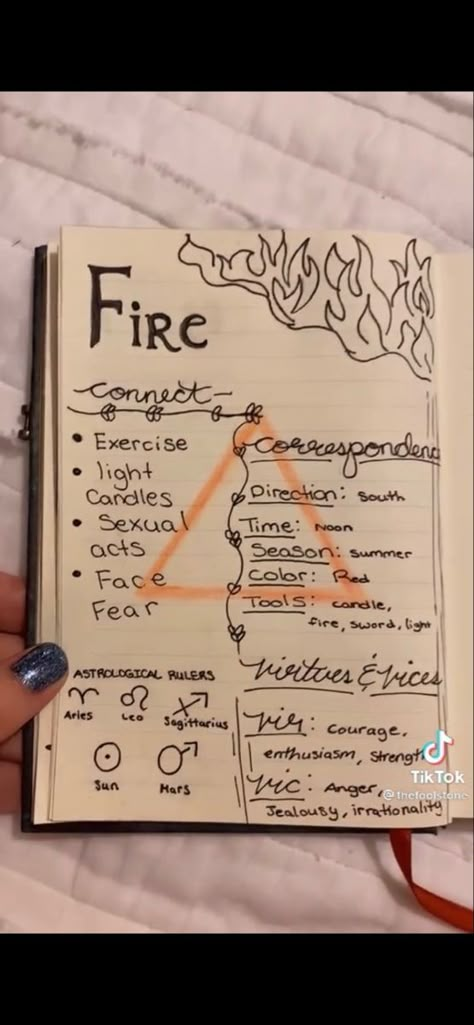 Fire
connect-
• Exercise
• light
Candles
• Sexual
acts
• Face
Fear
correspondenc
Direction: South
Time: Noon
Season: summer
Color: Red
Tools: candle,
fire, sword, light
ASTROLOGICAL RULERS
Aries Leo Sagittarius
Sun Mars
virtues & vices
Vir: Courage,
enthusiasm, strength
Vic: Anger,
Jealousy, irrationality
TikTok
@thefoolstone